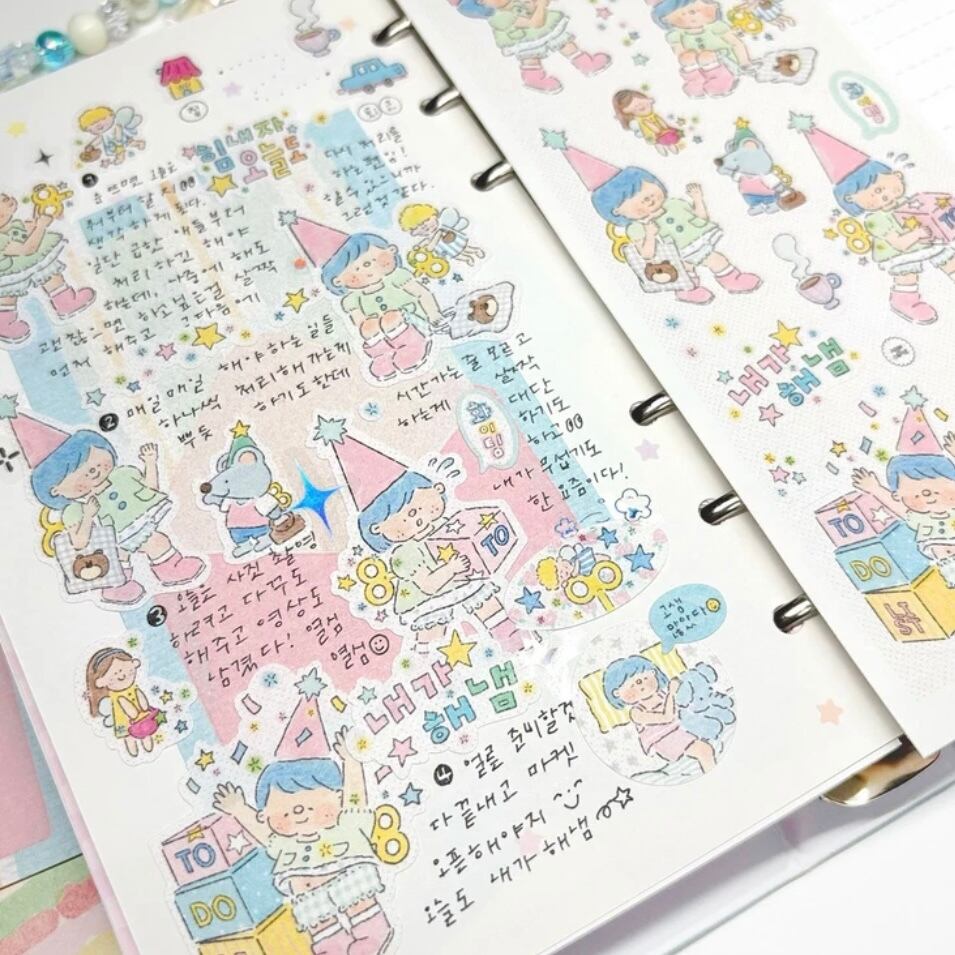 힘내자
오늘도
❶ 눈 뜨면
뭐부터 할지
생각하게 된다.
급한 애들부터
처리하긴 해야
하는데, 나중에 해도
살짝
먼저 해주고 그다음에
다시 처리를
하는
할 수 있으니까
그런것 같다.
❷ 매일매일 해야하는 일들
하나씩 처리해 가는게
뿌듯 하기도한데
시간가는 줄 모르고
하는게 살짝
대단
하기도
하고
내가 무섭기도
한 요즘이다!
화이팅
TO
❸ 오늘도 사진 촬영
하려고 다꾸도
해주고 영상도
남겼다! 열심
열심
내가
해냄
고생
많았다
❹ 얼른 준비할것
다 끝내고 마켓
오픈해야지
오늘도 내가 해냄
TO
DO
화이팅
TO
내가
해냄
TO
DO
LIST